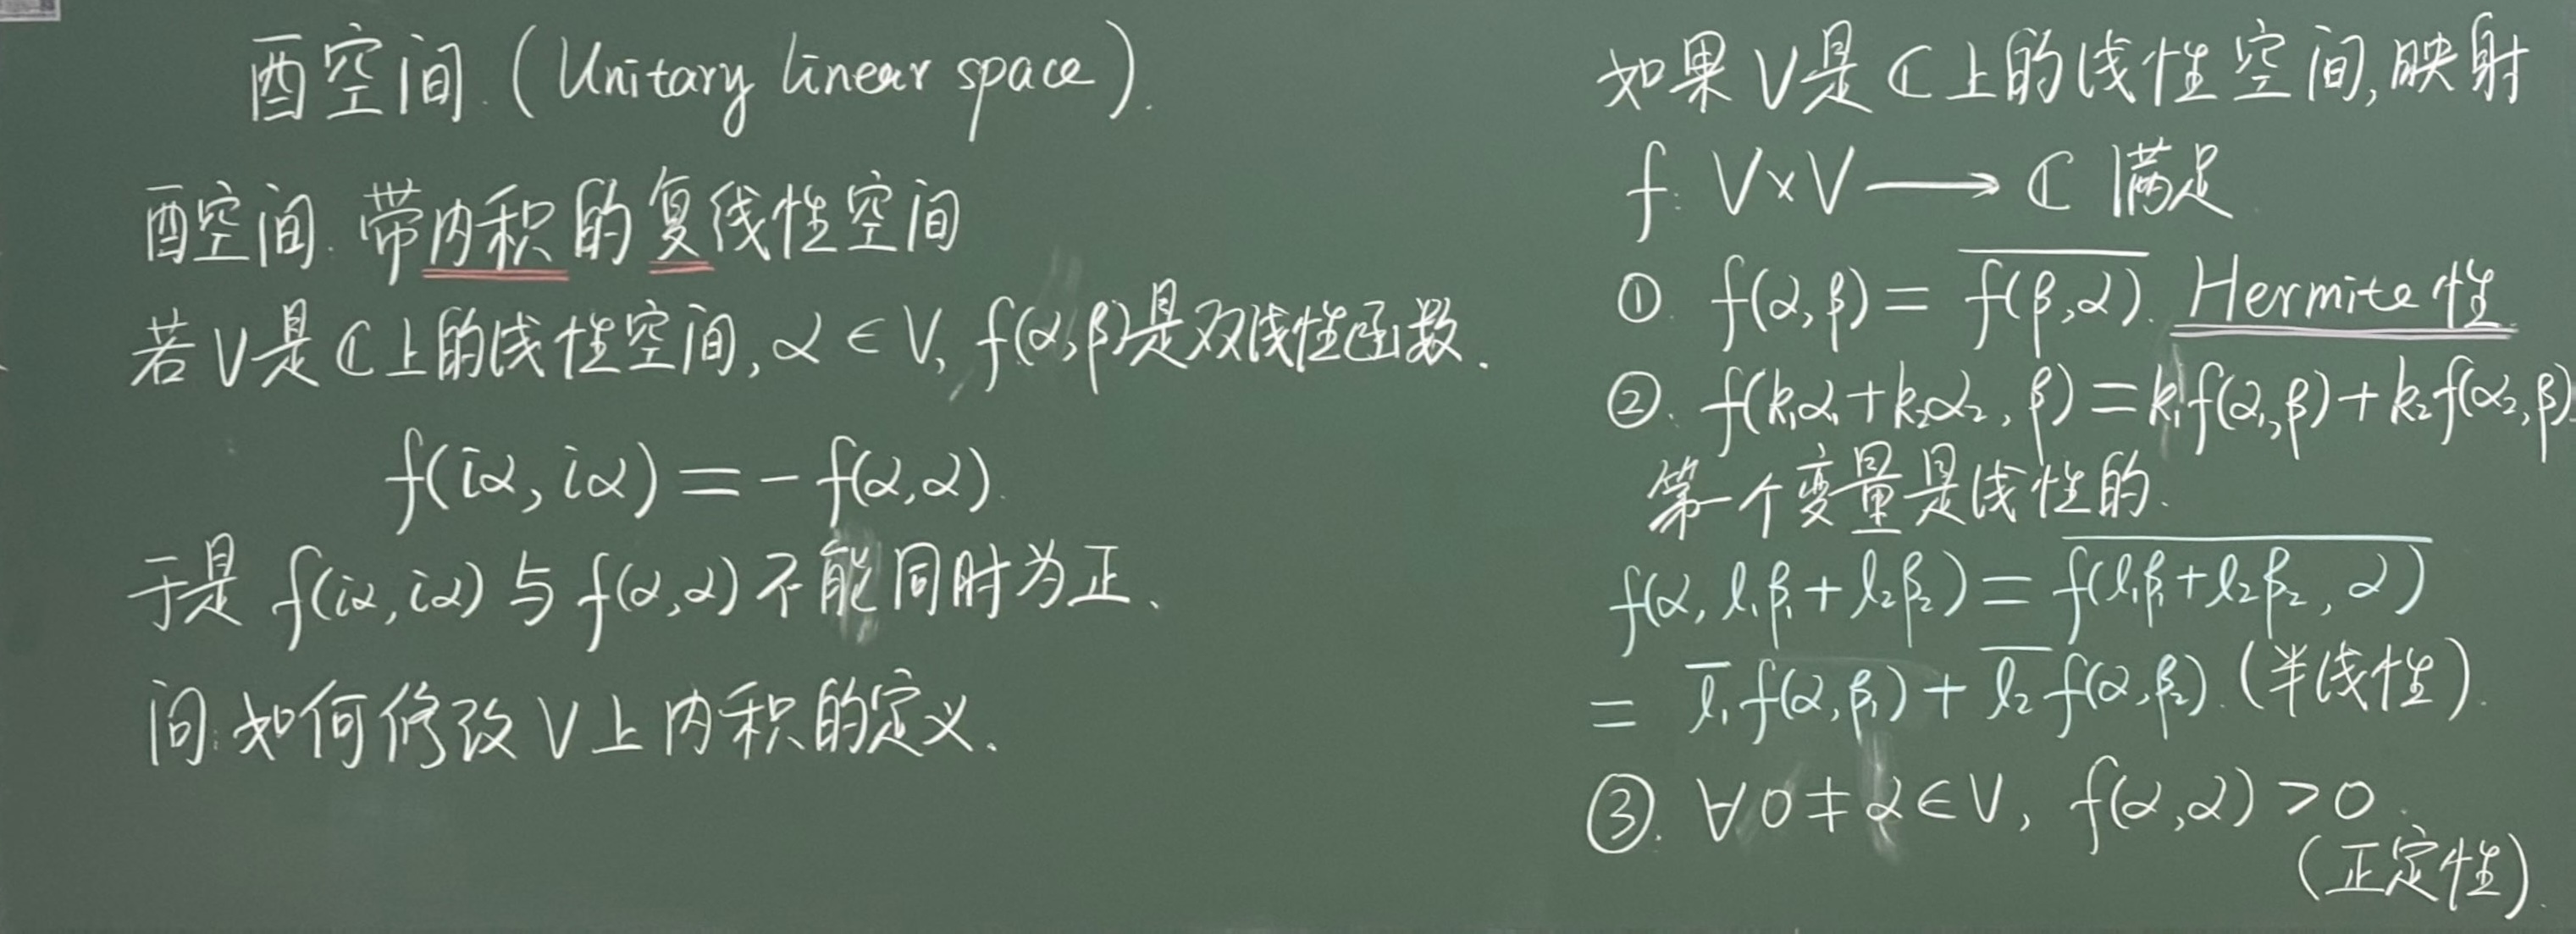 酉空间.(Unitary linear space).
酉空间.带内积的复线性空间
若V是ℂ上的线性空间,α∈V, f(α,β)是双线性函数.
f(iα,iα)=-f(α,α).
于是f(iα,iα)与f(α,α)不能同时为正、
问:如何修改V上内积的定义.
如果V是ℂ上的线性空间,映射
f: V×V⟶ℂ 满足
①. f(α,β)=\overline{f(β,α)}. Hermite性
②. f(k₁α₁+k₂α₂,β)=k₁f(α₁,β)+k₂f(α₂,β).
第一个变量是线性的.
f(α,l₁β₁+l₂β₂)=\overline{f(l₁β₁+l₂β₂,α)}
=\overline{l₁}f(α,β₁)+\overline{l₂}f(α,β₂).(半线性).
③. ∀0≠α∈V, f(α,α)>0.
(正定性).